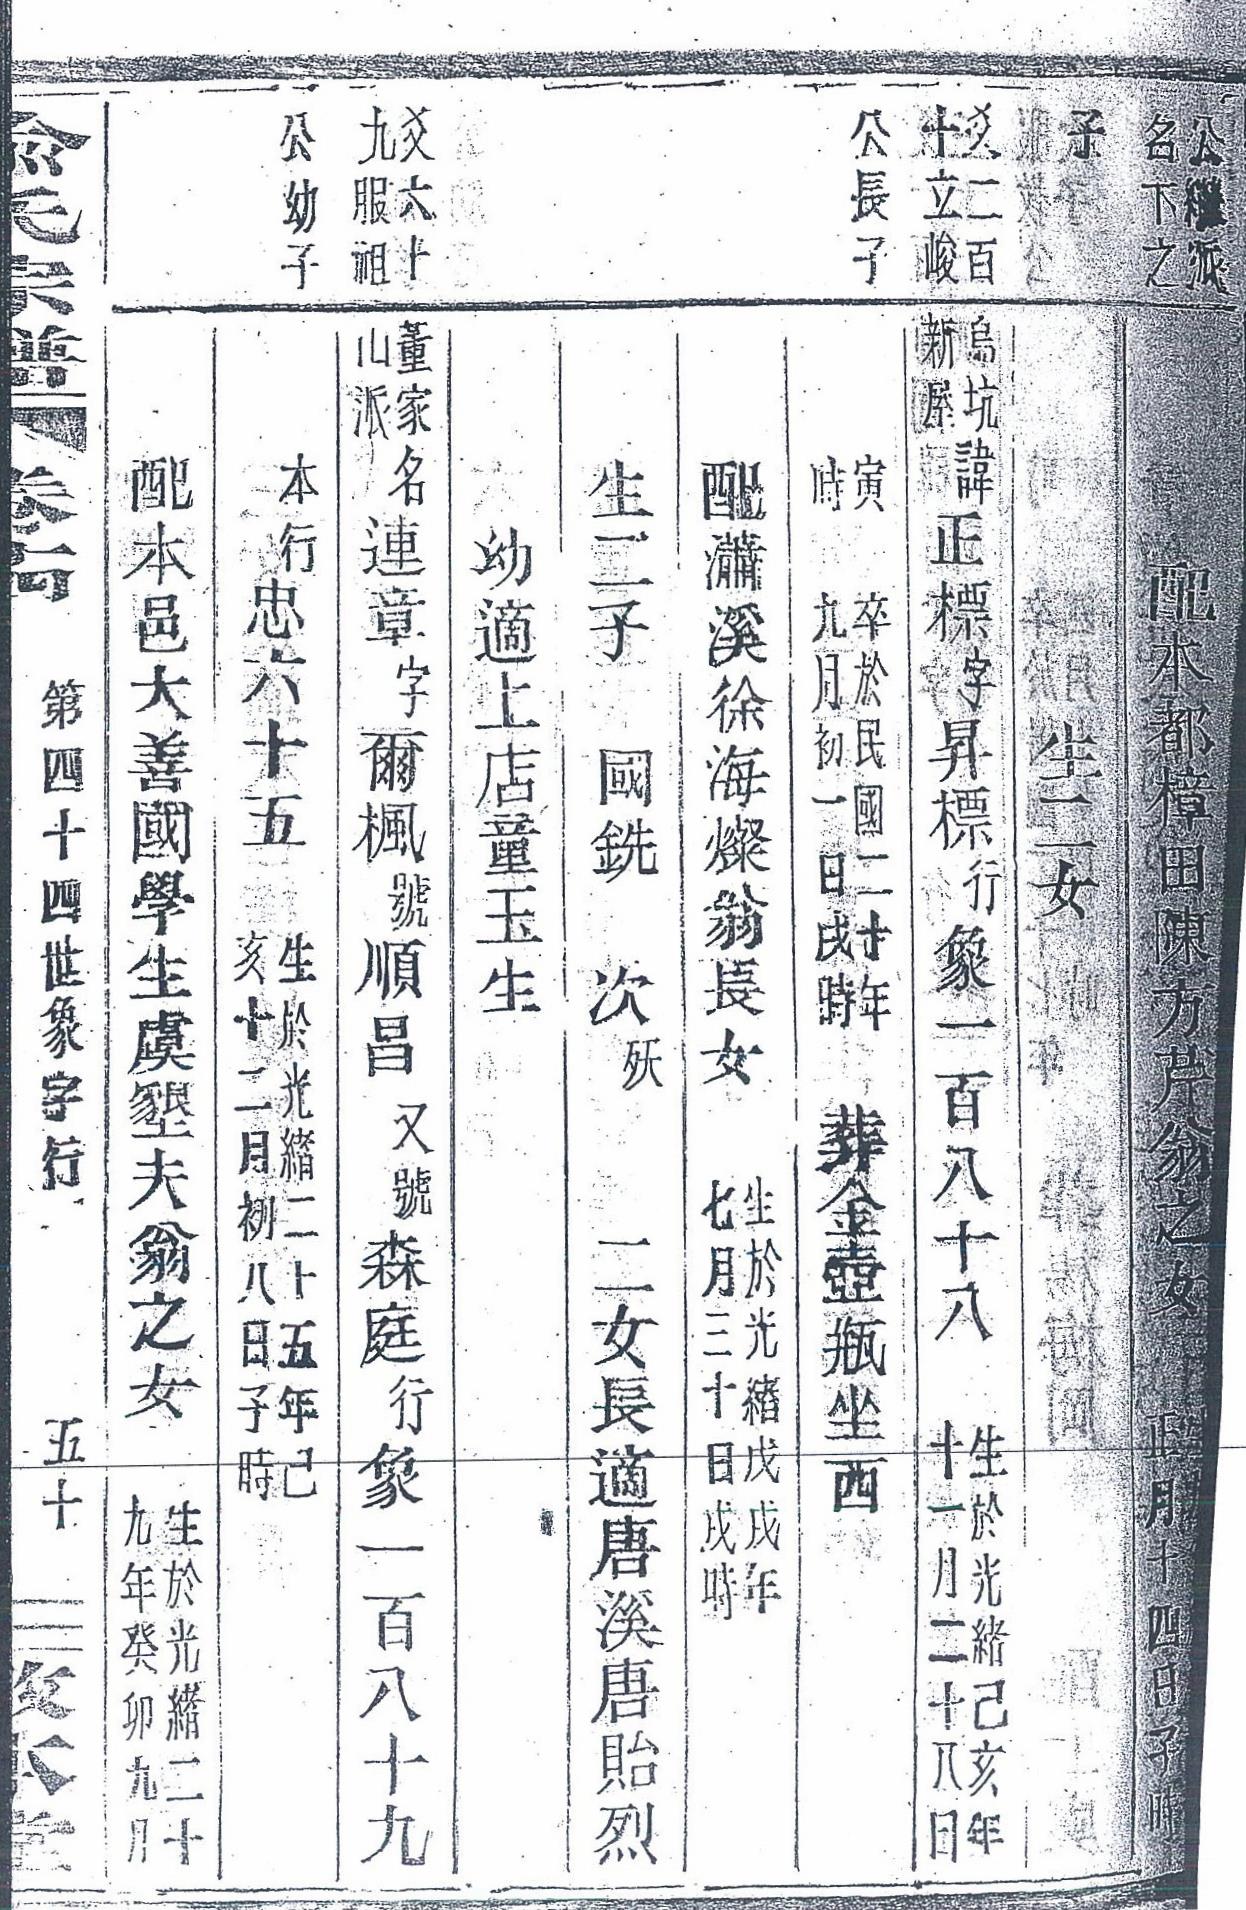 公繼派
名下之
子
配本都樟田陳方芹翁之女
正月十四日子時
生二女
爻二百
十立峻
公長子
烏坑
新屋
諱正標字昇標行象一百八十八
生於光緒己亥年
十一月二十八日
寅
時
卒於民國二十年
九月初一日戌時
葬金壺瓶坐西
配瀟溪徐海燦翁長女
生於光緒戊戌年
七月三十日戌時
生二子 國銑 次殀 二女長適唐溪唐貽烈
幼適上店童玉生
爻六十
九服祖
公幼子
董家
山派
名連章字爾楓號順昌又號森庭行象一百八十九
本行忠六十五
生於光緒二十五年己
亥十二月初八日子時
配本邑大善國學生虞墾夫翁之女
生於光緒二十
九年癸卯九月
俞氏宗譜
第四十四世象字行
五十
敦本堂